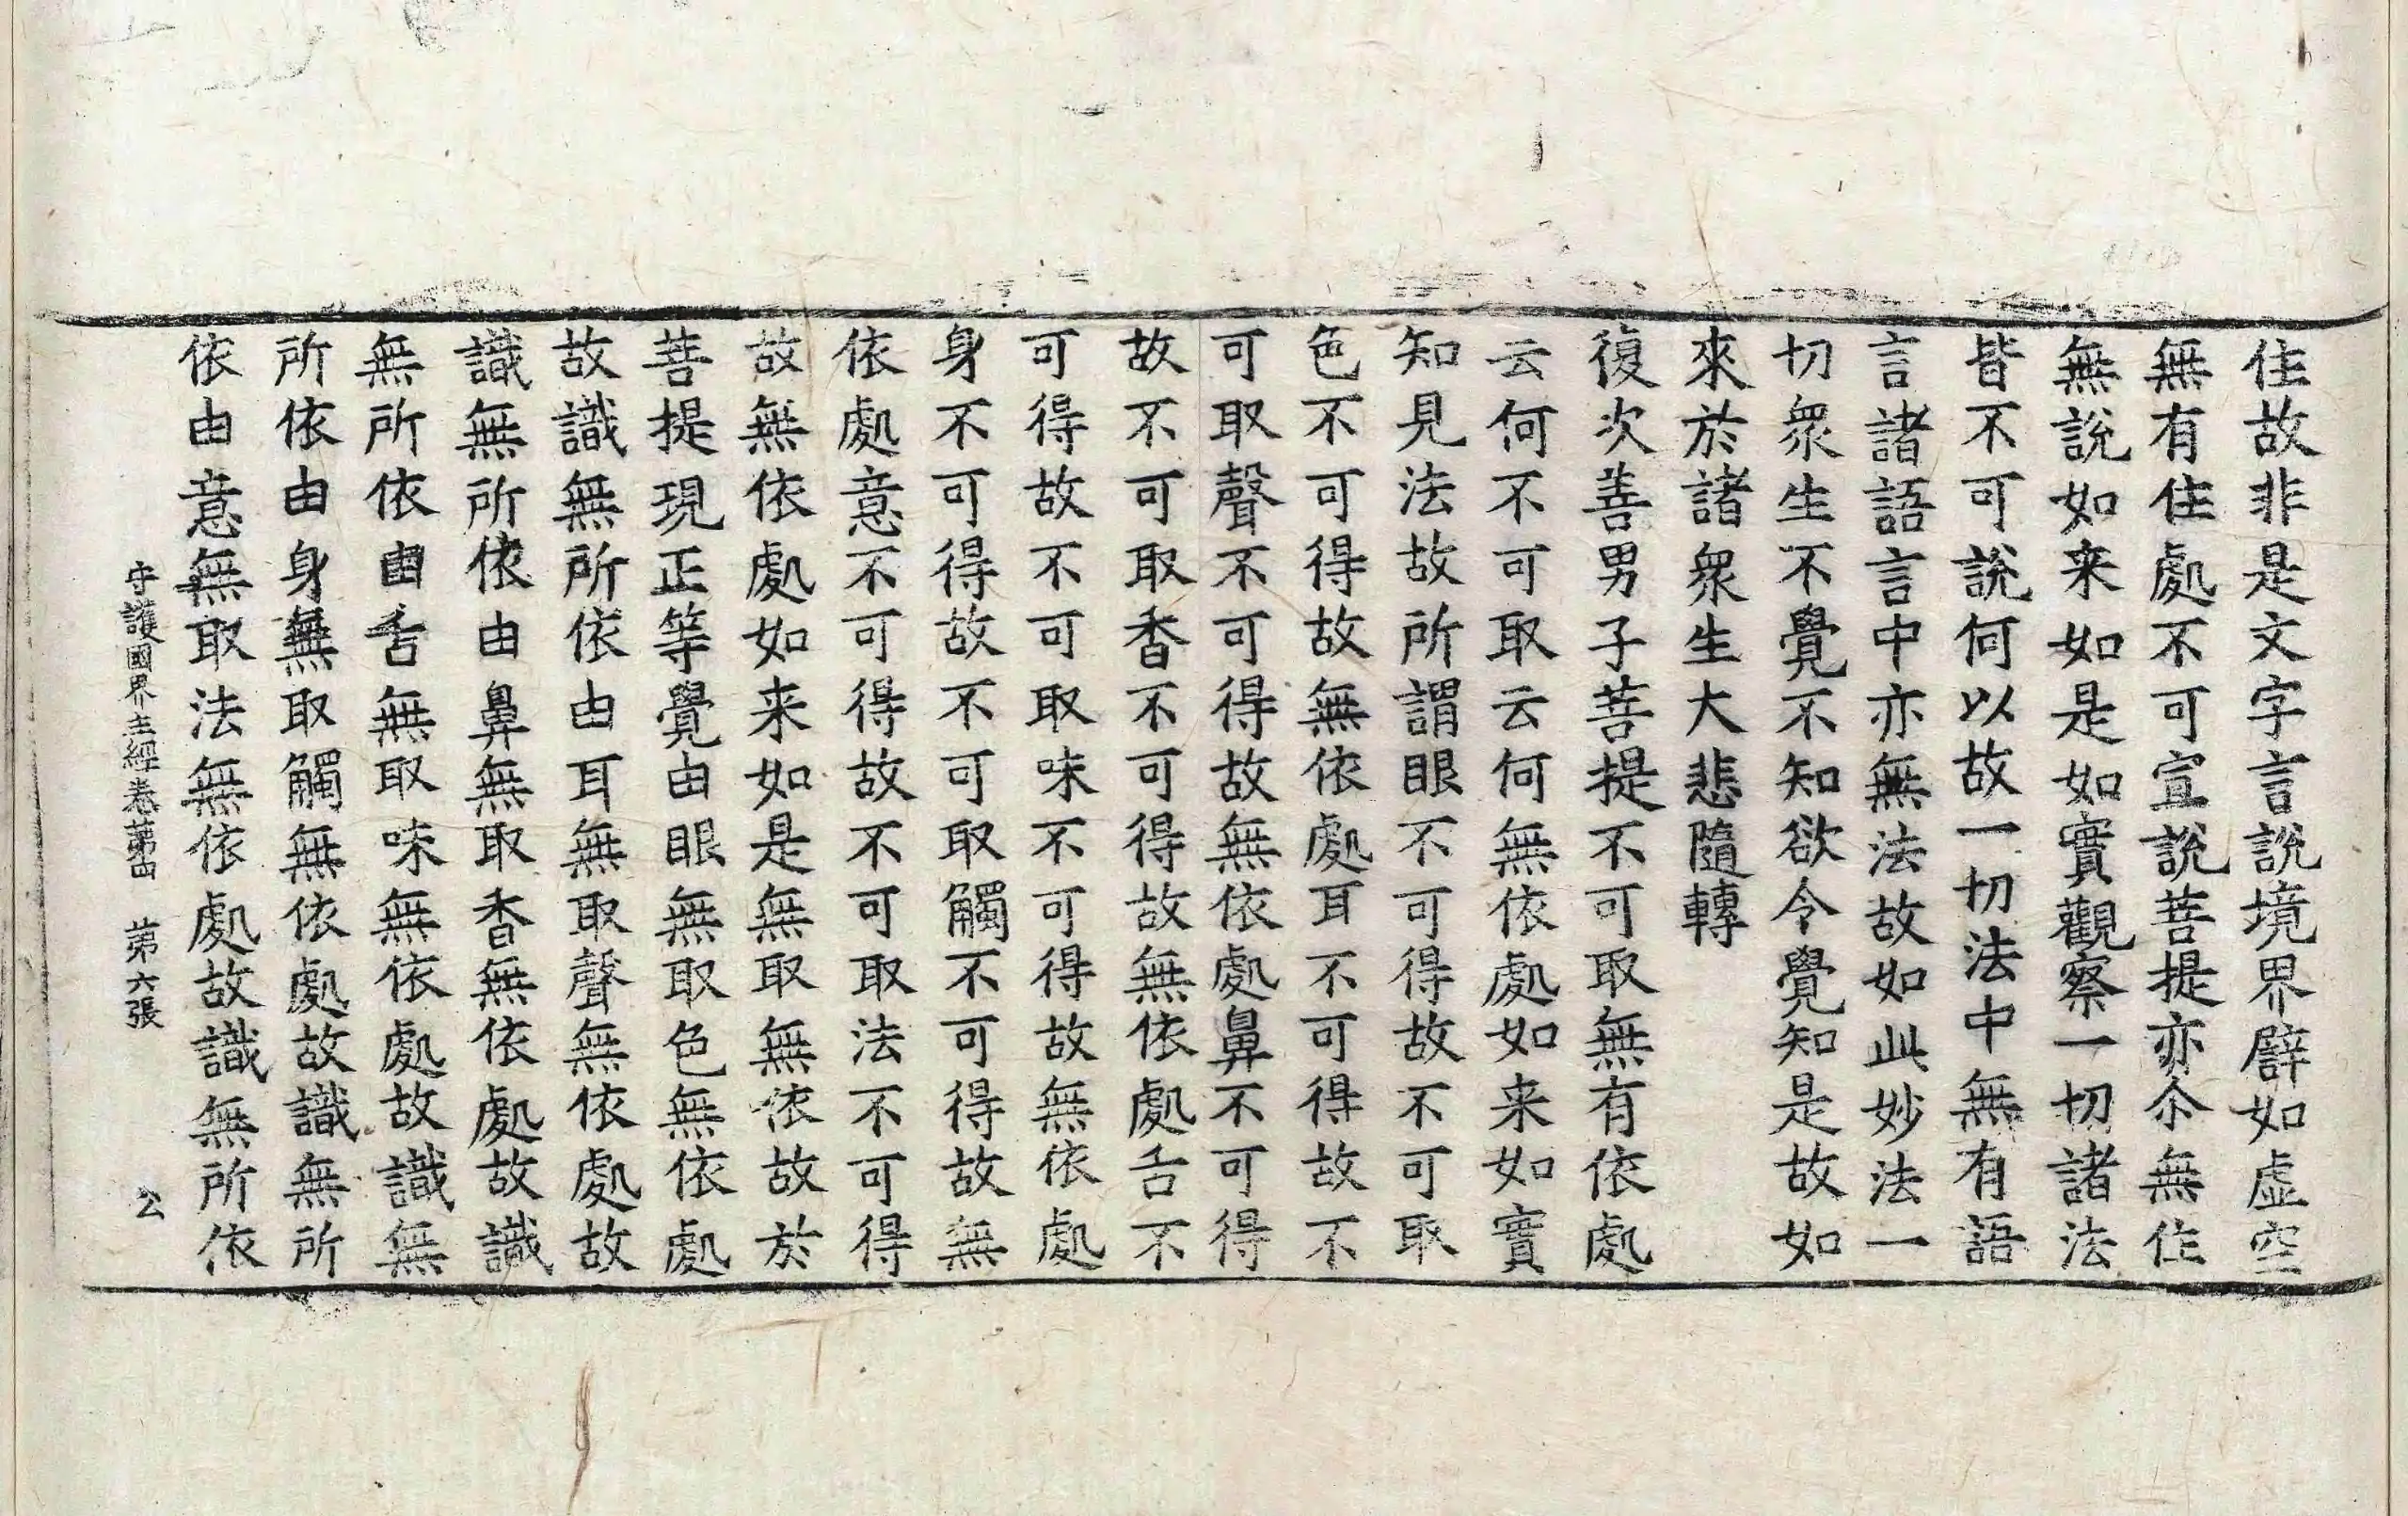 住故非是文字言說境界譬如虛空
無有住處不可宣說菩提亦尒無住
無說如来如是如實觀察一切諸法
皆不可說何以故一切法中無有語
言諸語言中亦無法故如此妙法一
切衆生不覺不知欲令覺知是故如
來於諸衆生大悲隨轉
復次善男子菩提不可取無有依處
云何不可取云何無依處如来如實
知見法故所謂眼不可得故不可取
色不可得故無依處耳不可得故不
可取聲不可得故無依處鼻不可得
故不可取香不可得故無依處舌不
可得故不可取味不可得故無依處
身不可得故不可取觸不可得故無
依處意不可得故不可取法不可得
故無依處如来如是無取無依故於
菩提現正等覺由眼無取色無依處
故識無所依由耳無取聲無依處故
識無所依由鼻無取香無依處故識
無所依由舌無取味無依處故識無
所依由身無取觸無依處故識無所
依由意無取法無依處故識無所依
守護國界主經卷第四 第六張 公